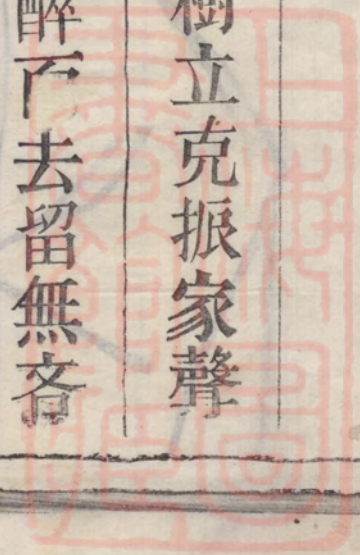 樹立克振家聲
醉而去留無吝